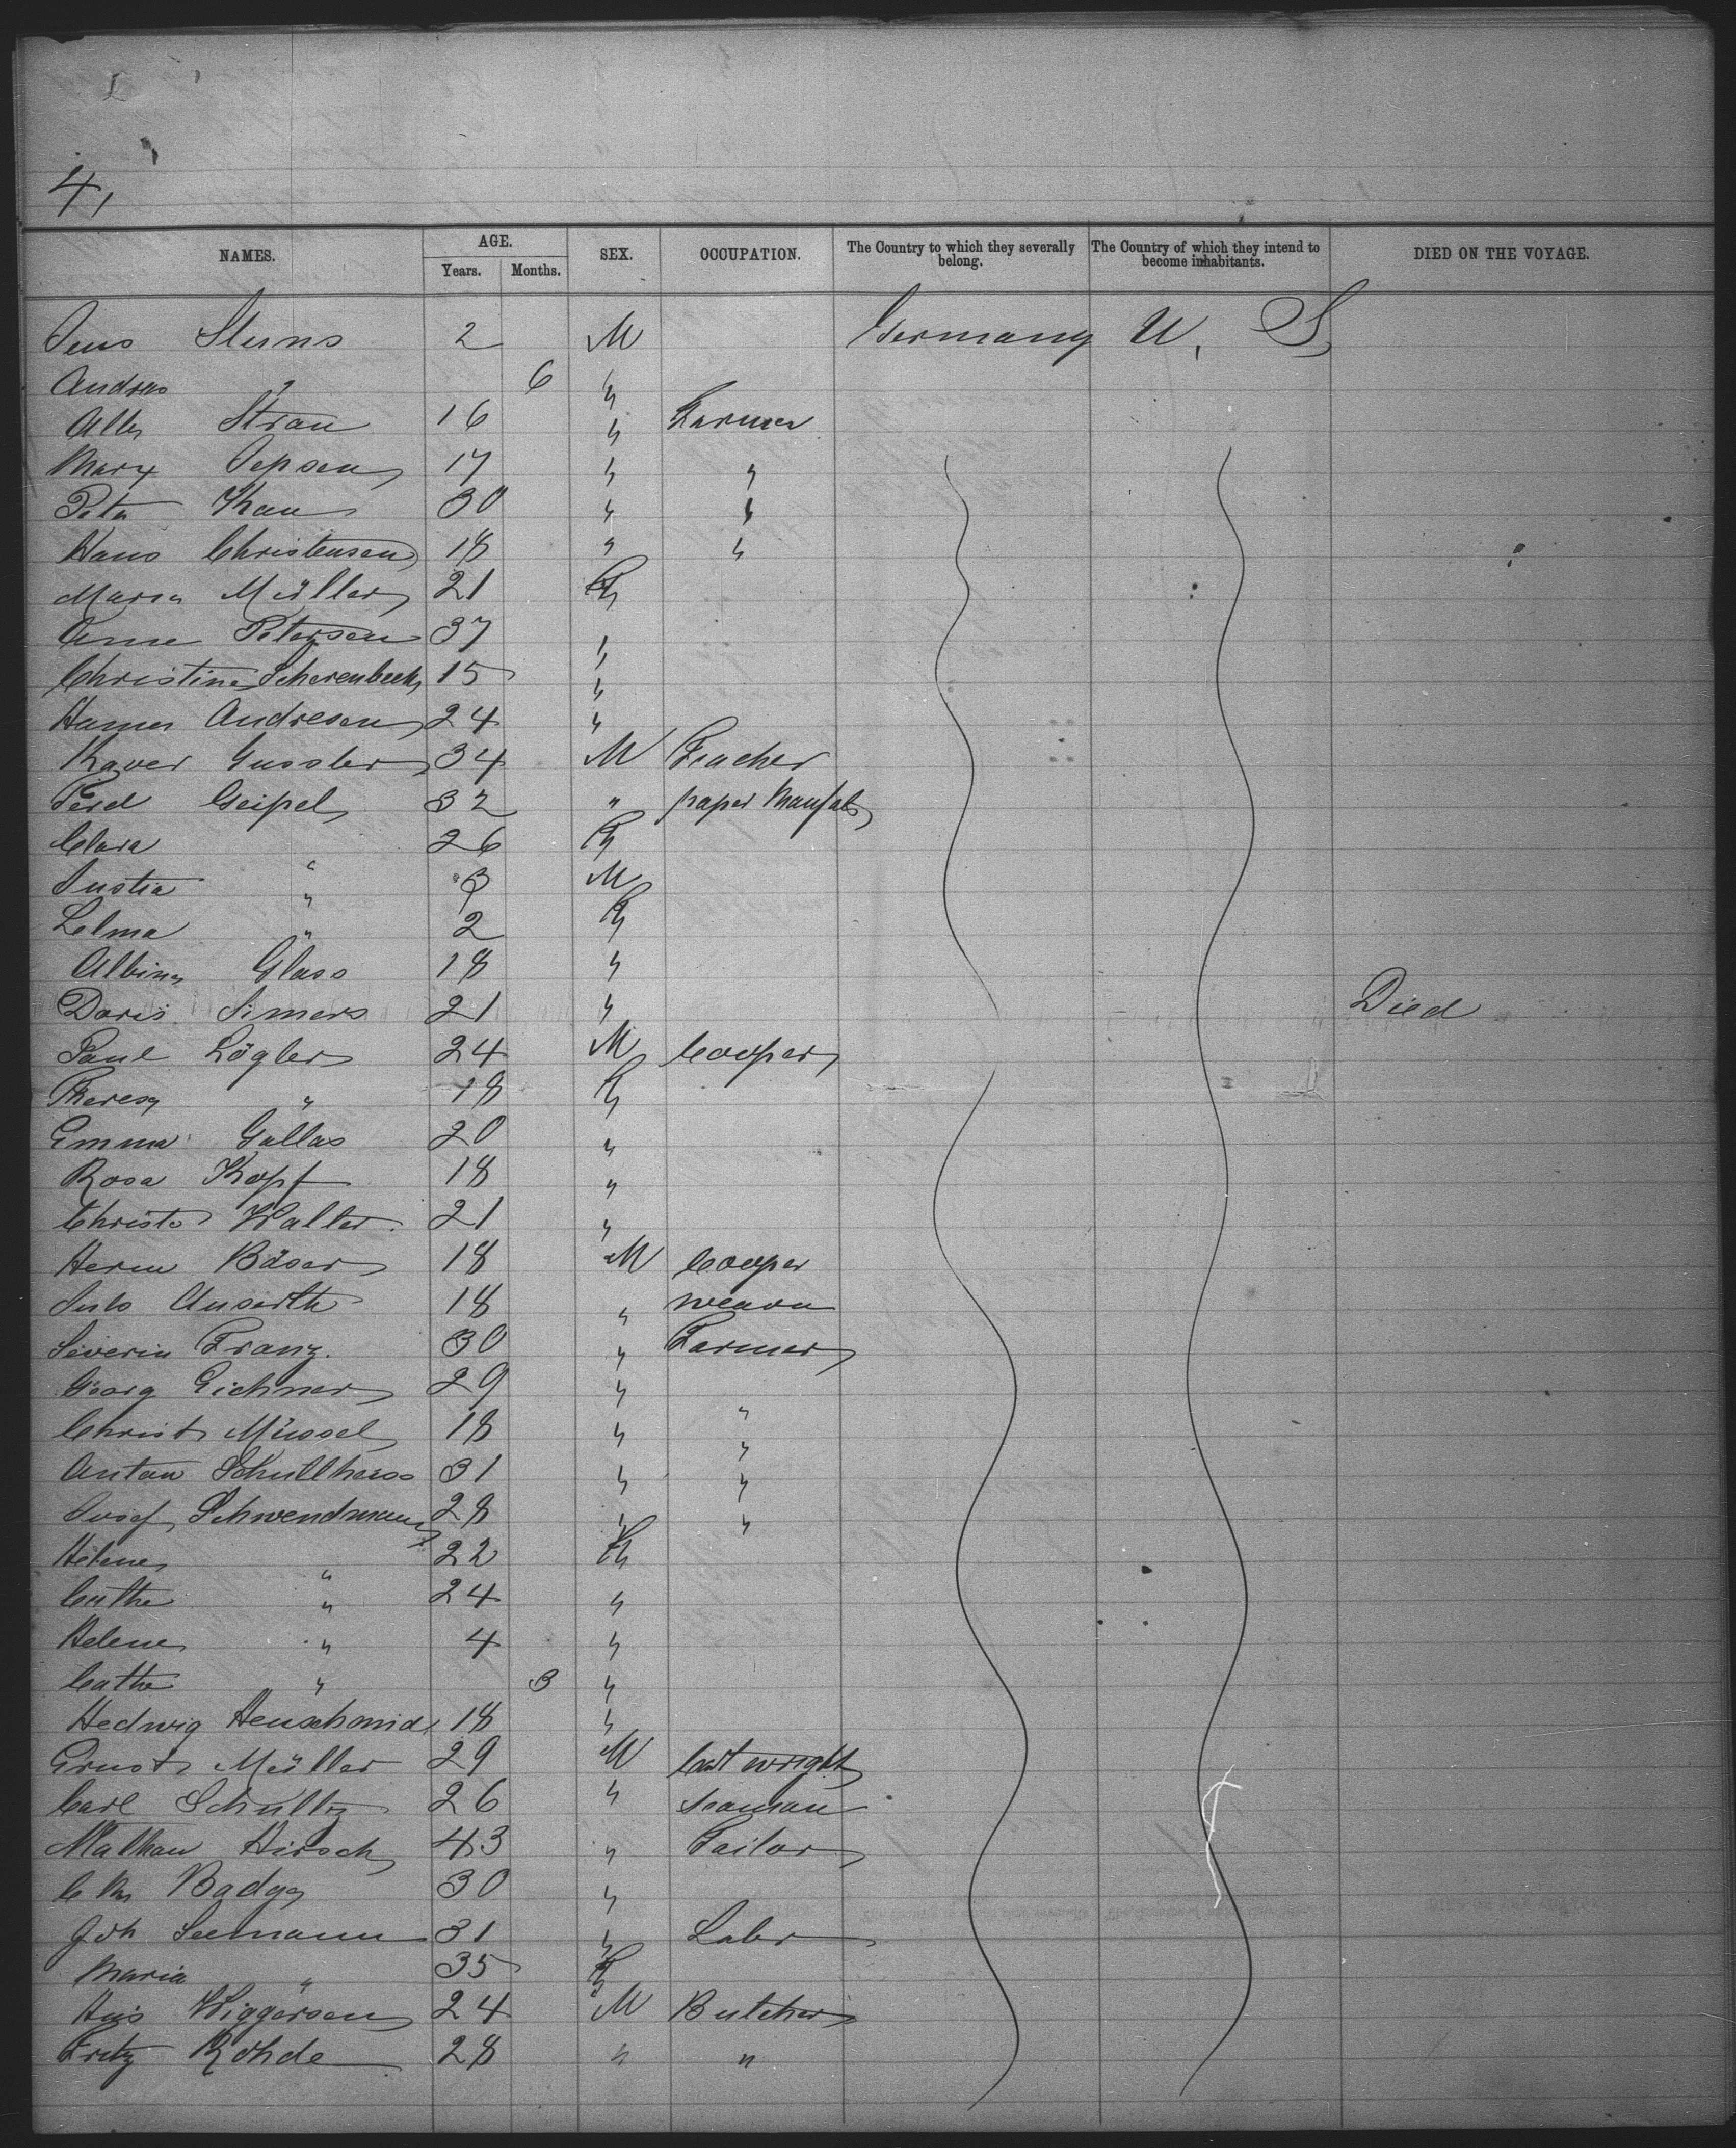 4,
NAMES. AGE. SEX. OCCUPATION. The Country to which they severally belong. The Country of which they intend to become inhabitants. DIED ON THE VOYAGE.
Years. Months.
Jens Sluns 2 M Germany U. S.
Andreas " 6 "
Strau 16 " Farmer
Marx Jepsen 17 " "
Peter Khau 30 " "
Hans Christensen 18 " "
Maria Müller 21 F
Anne Petersen 37 "
Christine Scherenbeck 15 "
Andresen 24 "
Xaver Gussler 34 M Teacher
Ferd Geipel 32 " paper Manufat
Clara " 26 F
" 3 M
Selma " 2 F
Albine Glass 18 "
Doris Simers 21 " Died
Paul Lögler 24 M Cooper
Theresa " 18 F
Emma Gallas 20 "
Rosa Kopf 18 "
Christe Walter 21 "
Herm Böser 18 M Cooper
18 " weaver
Severin Franz. 30 " Farmer
Georg Eichner 29 " "
Christ Müssel 18 " "
Anton Schultheiss 31 " "
Josef Schwendmann 28 " "
Helene " 22 F
Cathe " 24 "
Helene " 4 "
Cathe " 3 "
Hedwig Heuschmid 18 "
Ernst Müller 29 M Cart wright
Carl Schultz 26 " seaman
Nathan Hirsch 43 " Tailor
Badgg 30 "
Joh Seemann 31 " Labr
Maria " 35 F
Wiggersen 24 M Butcher
Fritz Rohde 28 " "